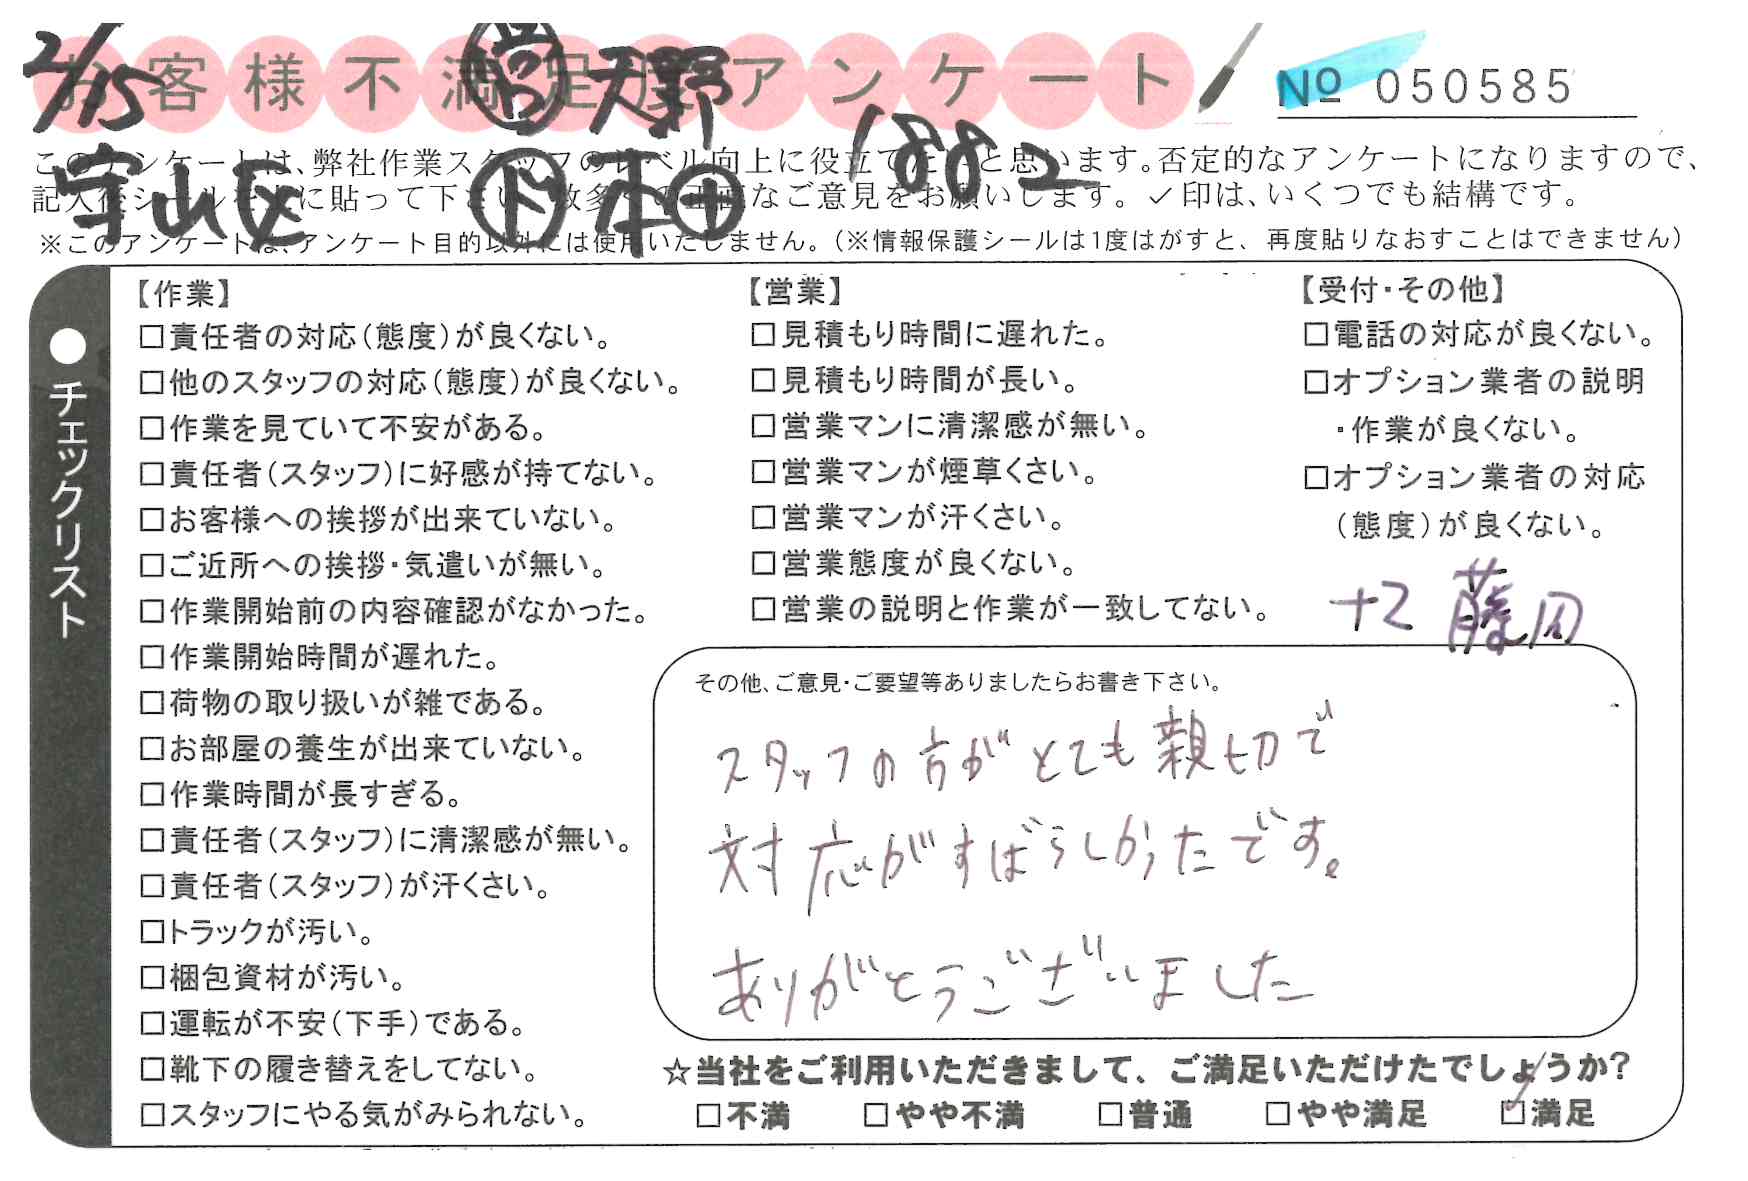 2/15 営 天野 1882
守山区 下 本田
お客様不満足度アンケート
№ 050585
このアンケートは、弊社作業スタッフのレベル向上に役立てたいと思います。否定的なアンケートになりますので、
記入後シールを上に貼って下さい。数多くの正直なご意見をお願いします。✓印は、いくつでも結構です。
※このアンケートは、アンケート目的以外には使用いたしません。（※情報保護シールは1度はがすと、再度貼りなおすことはできません）
●チェックリスト
【作業】
□責任者の対応（態度）が良くない。
□他のスタッフの対応（態度）が良くない。
□作業を見ていて不安がある。
□責任者（スタッフ）に好感が持てない。
□お客様への挨拶が出来ていない。
□ご近所への挨拶・気遣いが無い。
□作業開始前の内容確認がなかった。
□作業開始時間が遅れた。
□荷物の取り扱いが雑である。
□お部屋の養生が出来ていない。
□作業時間が長すぎる。
□責任者（スタッフ）に清潔感が無い。
□責任者（スタッフ）が汗くさい。
□トラックが汚い。
□梱包資材が汚い。
□運転が不安（下手）である。
□靴下の履き替えをしてない。
□スタッフにやる気がみられない。
【営業】
□見積もり時間に遅れた。
□見積もり時間が長い。
□営業マンに清潔感が無い。
□営業マンが煙草くさい。
□営業マンが汗くさい。
□営業態度が良くない。
□営業の説明と作業が一致してない。
【受付・その他】
□電話の対応が良くない。
□オプション業者の説明
・作業が良くない。
□オプション業者の対応
（態度）が良くない。
その他、ご意見・ご要望等ありましたらお書き下さい。
スタッフの方がとても親切で
対応がすばらしかったです。
ありがとうございました
☆当社をご利用いただきまして、ご満足いただけたでしょうか?
□不満 □やや不満 □普通 □やや満足 ☑満足